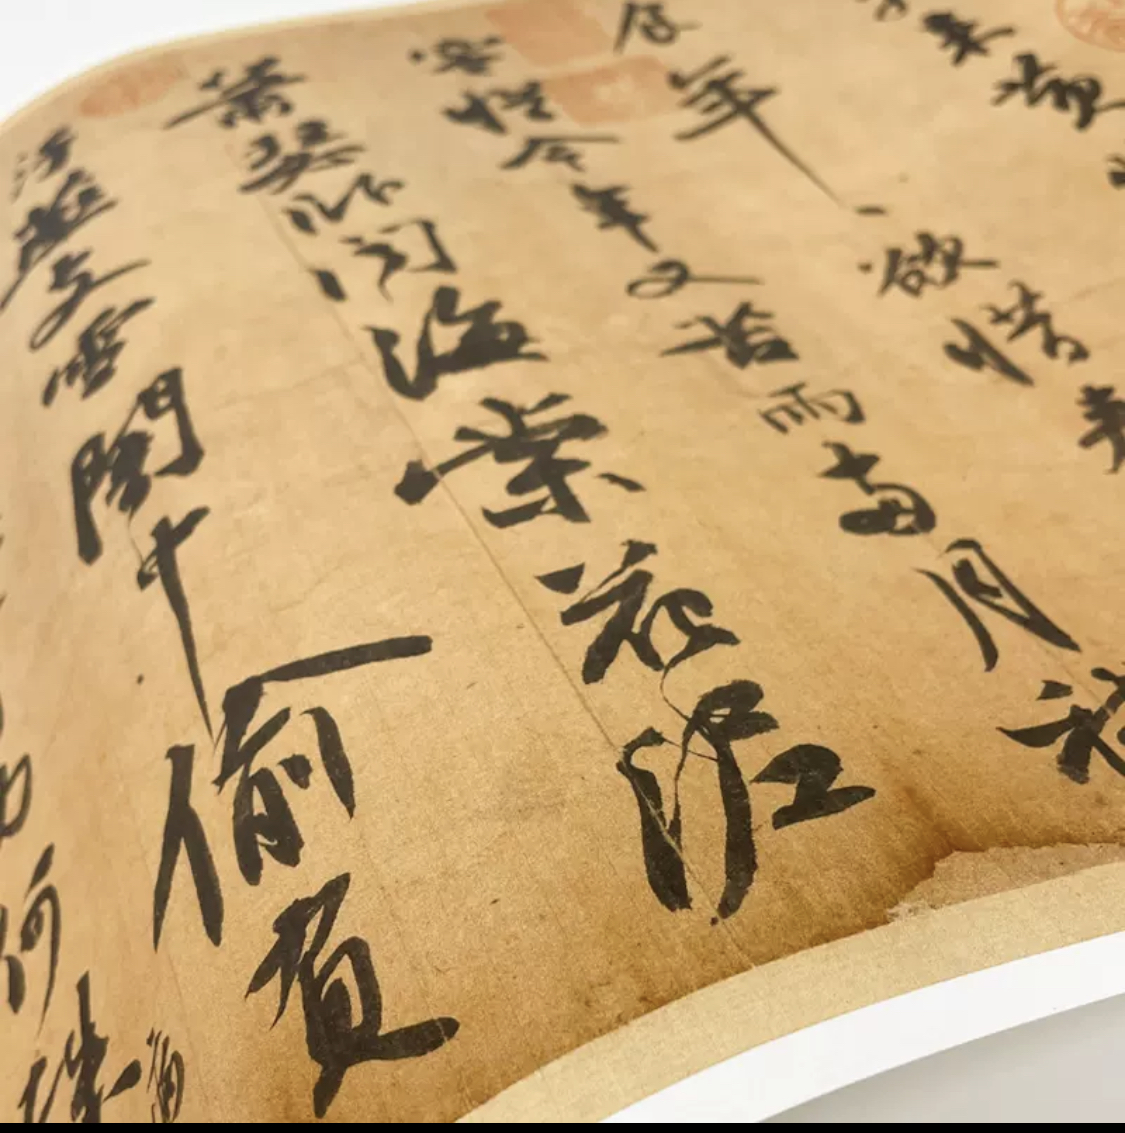 來黃
食年〻欲惜春
容惜今年又苦雨兩月秋
蕭瑟卧聞海棠花泥
污燕支雪闇中偷負
何殊